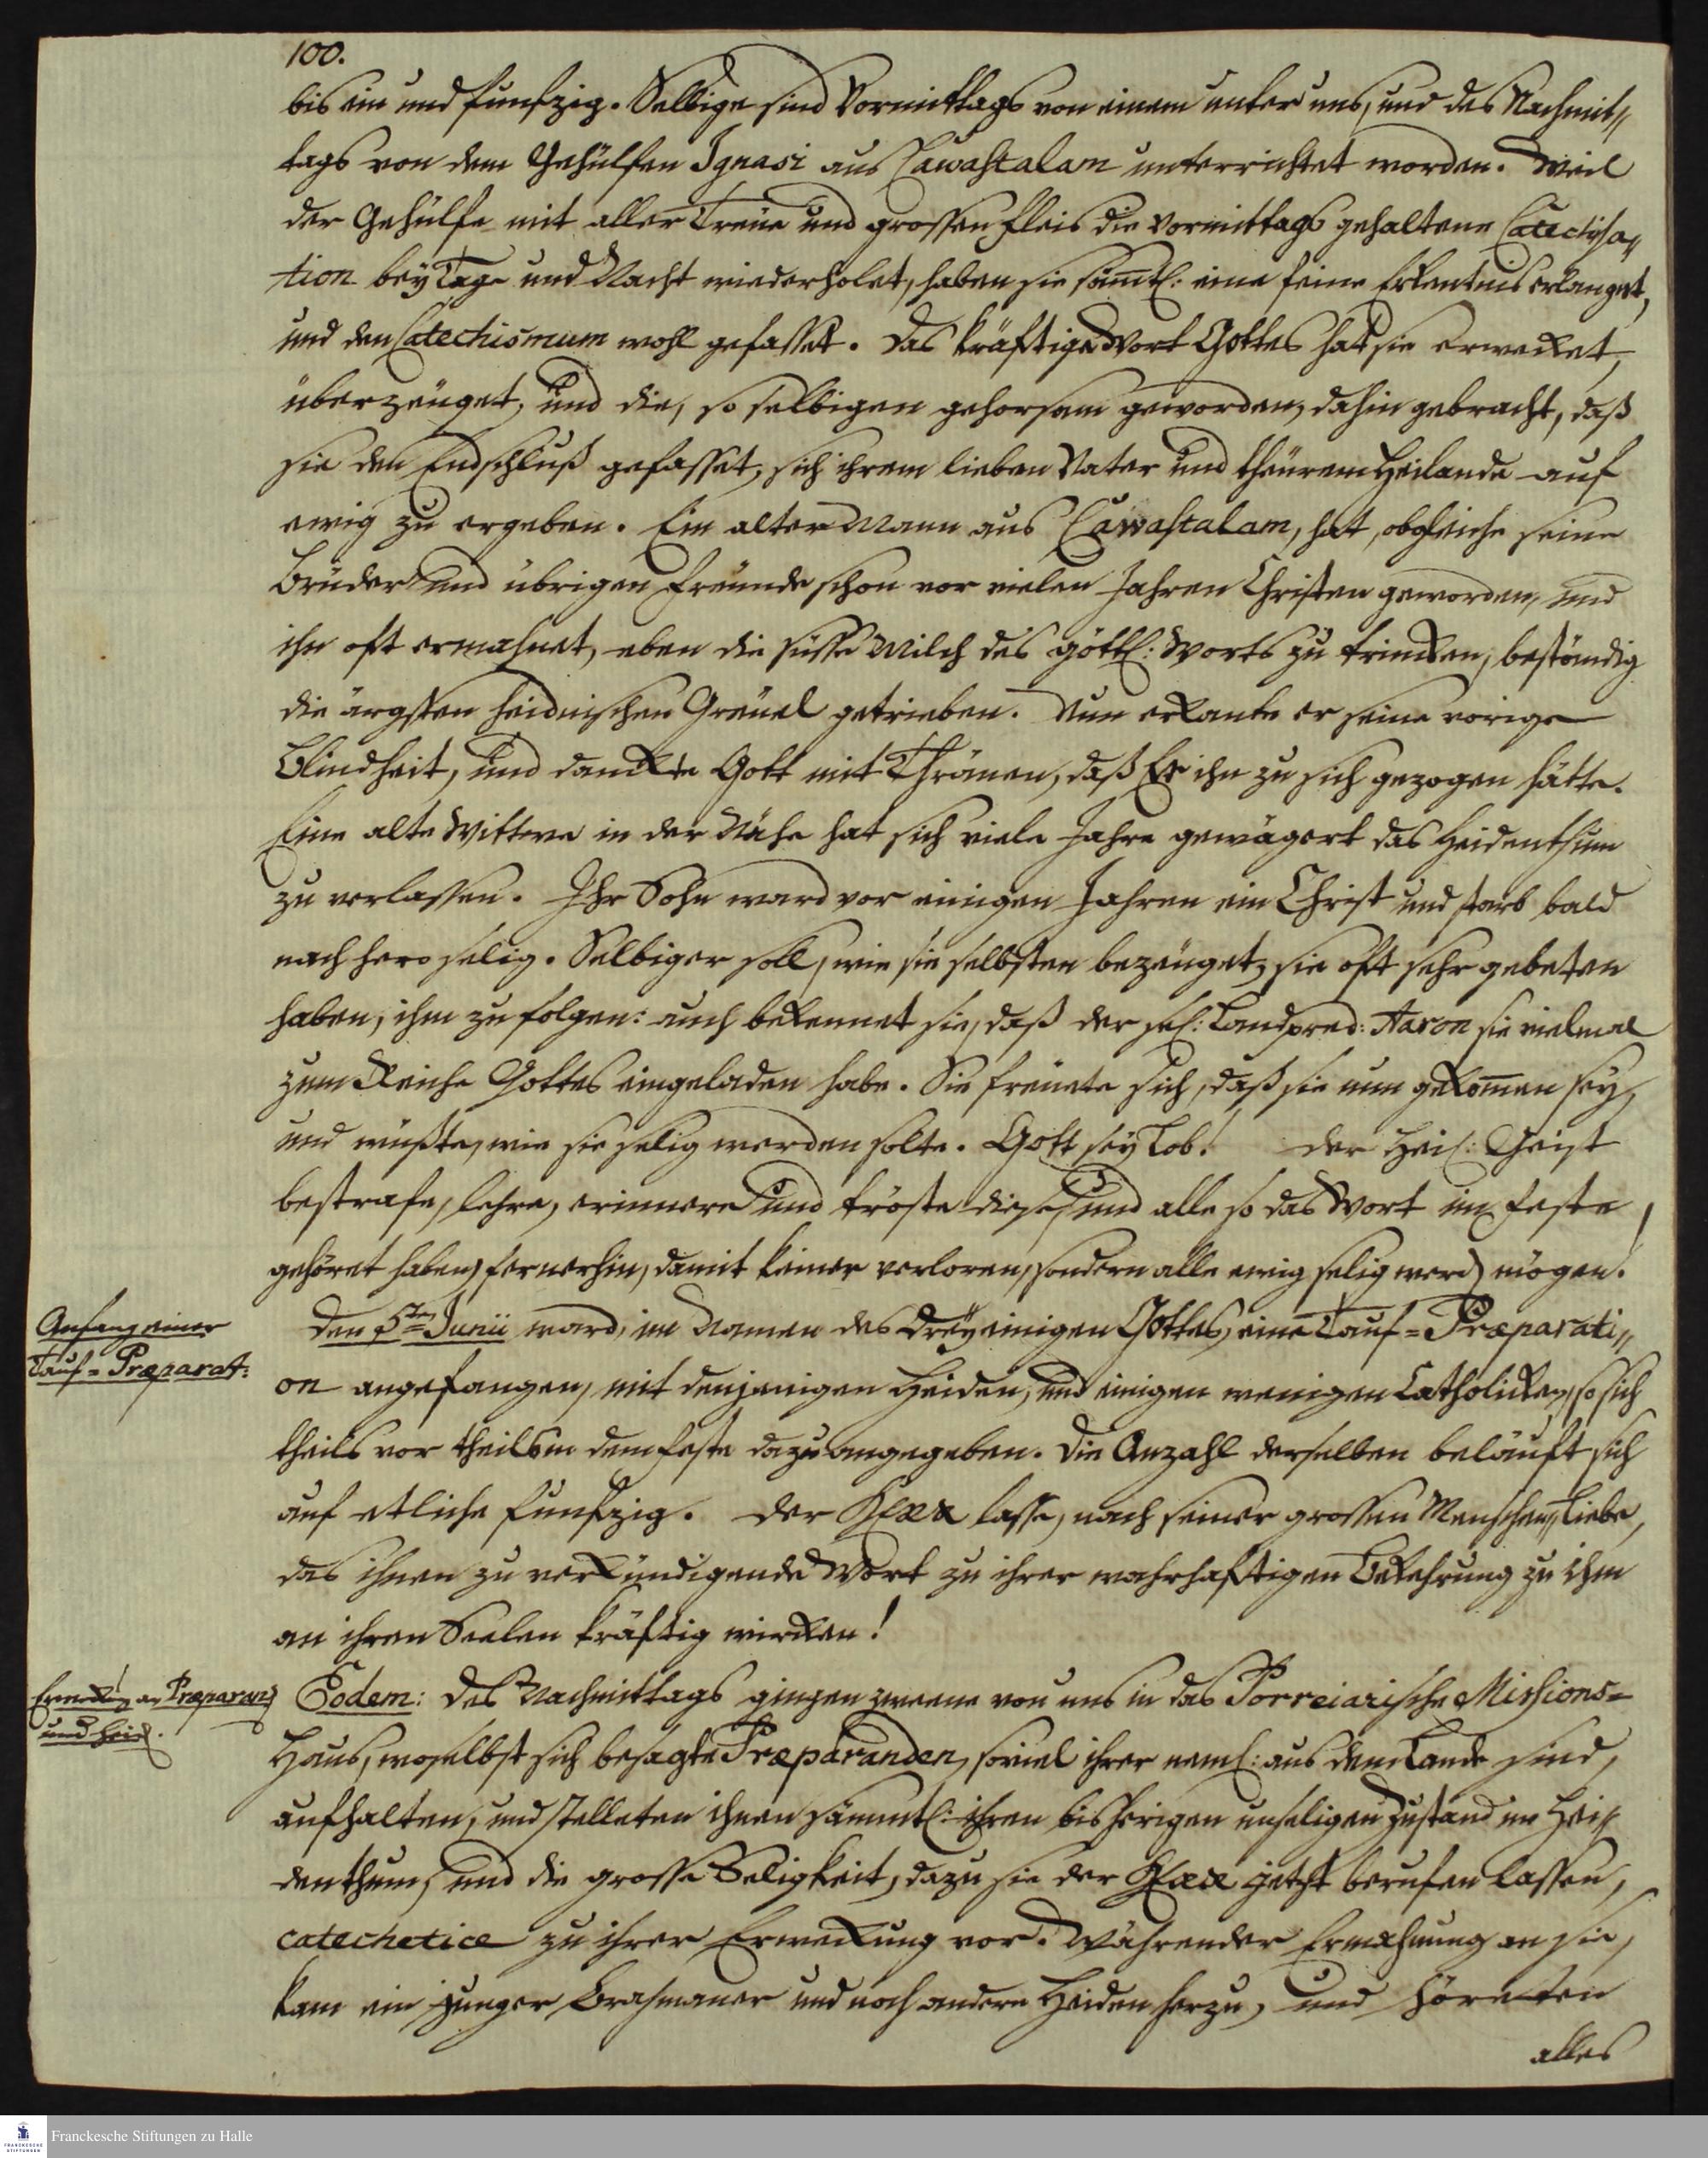 100.
bis ein und funfzig. Selbige sind Vormittags von einem unter uns, und des Nachmit„
tags von dem Gehülfen Ignasi aus Cawastalam unterrichtet worden. Weil
der Gehülfe mit aller Treue und grossen Fleis die Vormittags gehaltene Catechisa„
tion bey Tage und Nacht wiederholet, haben sie sämtl: eine feine Erkentnis erlanget,
und den Catechismum wohl gefasset. Das kräftige Wort Gottes hat sie erwecket,
überzeuget, und die, so selbigen gehorsam geworden, dahin gebracht, daß
sie den Endschluß gefasset, sich ihrem lieben Vater und theurem Heilande auf
ewig zu ergeben. Ein alter Mann aus Cawastalam, hat, obgleich seine
Brüder und übrigen Freunde schon vor vielen Jahren Christen geworden, und
ihn oft ermahnet, eben die süsse Milch des göttl: Worts zu trincken, beständig
die ärgsten heidnischen Greuel getrieben. Nun erkante er seine vorige
Blindheit, und danckte Gott mit Thränen, daß Er ihn zu sich gezogen hätte.
Eine alte Wittwe in der Nähe hat sich viele Jahre gewägert das Heidenthum
zu verlassen. Ihr Sohn ward vor einigen Jahren ein Christ und starb bald
nachhero selig. Selbiger soll, wie sie selbsten bezeuget, sie oft sehr gebeten
haben, ihm zu folgen: auch bekennet sie, daß der sel: Landpred: Aaron sie vielmal
zum Reiche Gottes eingeladen habe. Sie freuete sich, daß sie nun gekommen sey,
und wüßte, wie sie selig werden solte. Gott sey Lob! Der Heil: Geist
bestrafe, lehre, erinnere und tröste diese, und alle so das Wort im Feste
gehöret haben, fernerhin, damit keiner verloren, sondern alle ewig selig werden mögen!
Anfang einer
Tauf=Præparat:
Den 5ten Junii ward, im Namen des Dreyeinigen Gottes, eine Tauf=Præparati„
on angefangen, mit denjenigen Heiden, und einigen wenigen Catholicken, so sich
theils vor theils in dem Feste dazu angegeben. Die Anzahl derselben beläuft sich
auf etliche funfzig. Der HErr lasse, nach seiner grossen Menschen„Liebe,
das ihnen zu verkündigende Wort zu ihrer wahrhaftigen Bekehrung zu ihm
an ihren Seelen kräftig wircken!
Erweckung an Præparand
und Heid.
Eodem: Des Nachmittags gingen zweene von uns in das Porreiarische Missions=
Haus, woselbst sich besagte Præparanden, soviel ihrer neml: aus dem Lande sind,
aufhalten, und stelleten ihnen sämmtl: ihren bisherigen unseligen Zustand im Hei„
denthum, und die grosse Seligkeit, dazu sie der HErr jetzt berufen lassen,
catechetice zu ihrer Erweckung vor. Währender Ermahnung an sie,
kam ein junger Brahmaner und noch andere Heiden herzu, und höreten
alles
Franckesche Stiftungen zu Halle